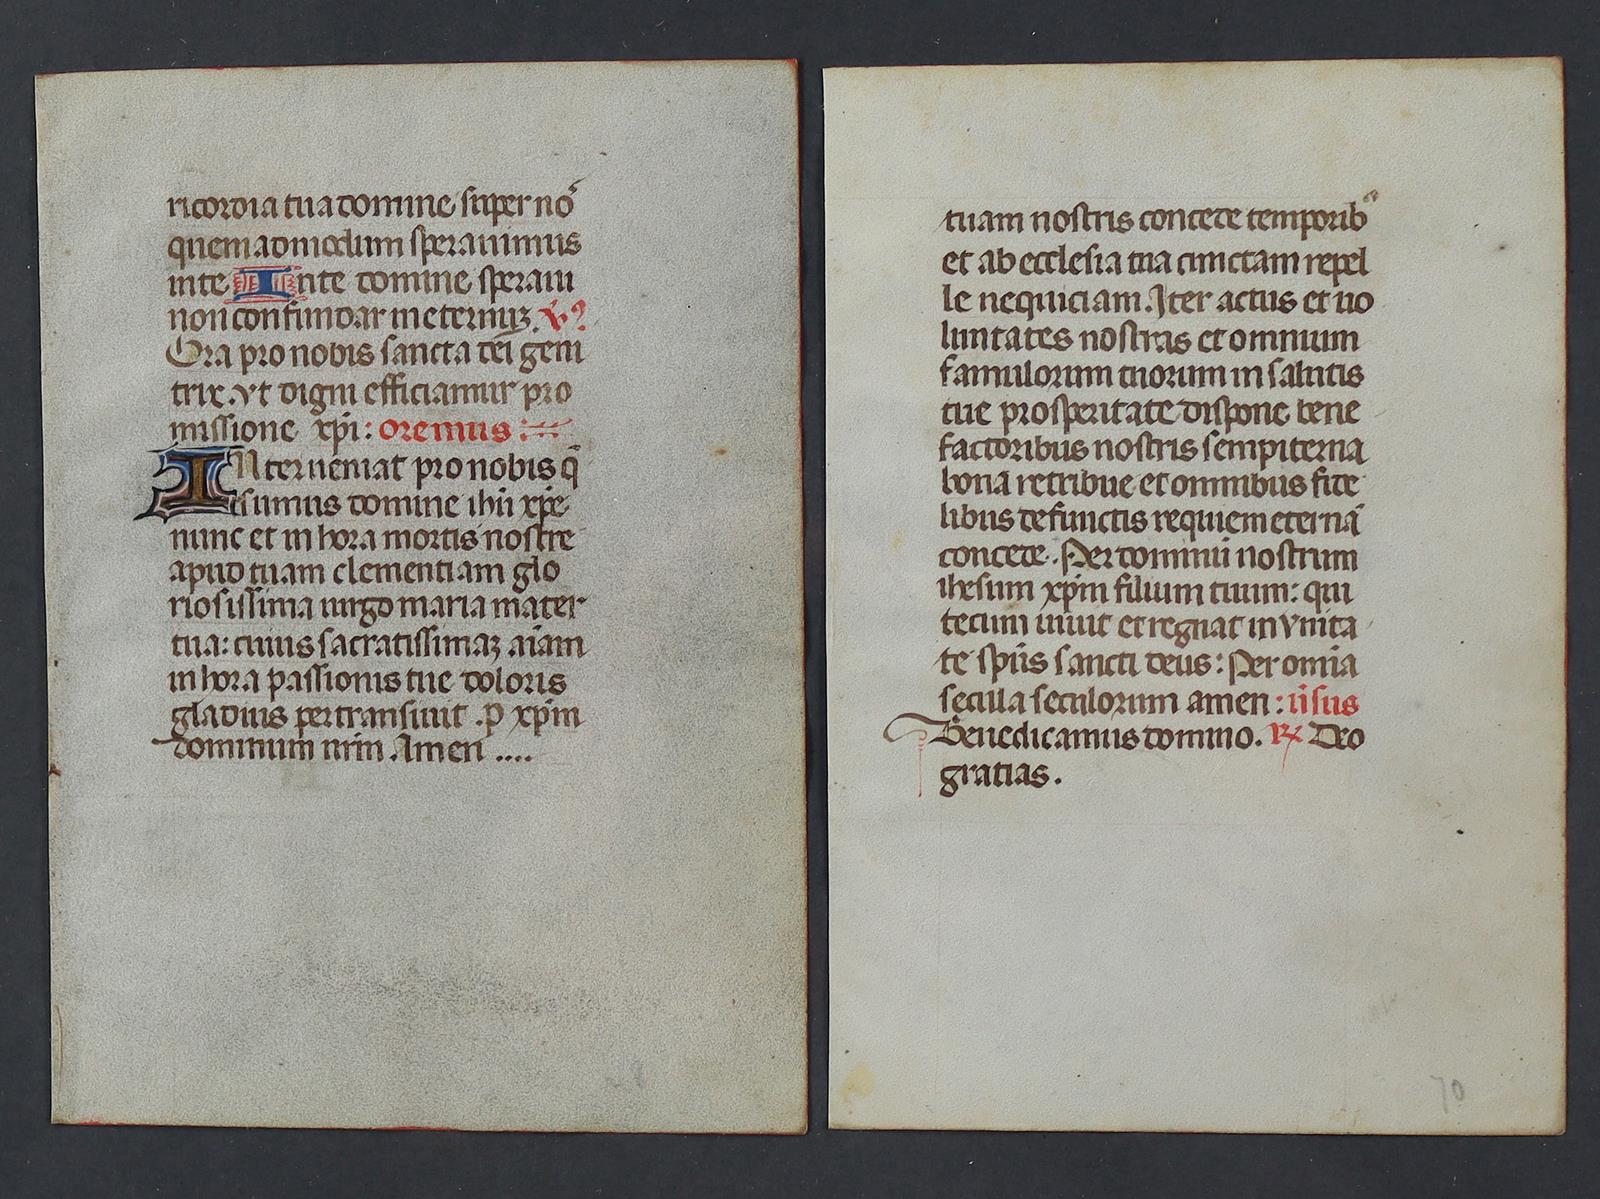 ricordia tua domine super nos
quemadmodum sperauimus
inte In te domine speraui
non confundar in eternuꝫ. v̓
Ora pro nobis sancta dei geni
trix. vt digni efficiamur pro
missione xp̄i: oremus :
INterueniat pro nobis q̄
sumus domine ihū xp̄e
nunc et in hora mortis nostre
apud tuam clementiam glo
riosissima uirgo maria mater
tua: cuius sacratissimaꝫ aīam
in hora passionis tue doloris
gladius pertransiuit .p xp̄m
dominum nr̄m Amen ....
tuam nostris concede temporibꝰ
et ab ecclesia tua cunctam repel
le nequiciam. Iter actus et uo
luntates nostras et omnium
famulorum tuorum in salutis
tue prosperitate dispone bene
factoribus nostris sempiterna
bonā retribue et omnibus fide
libus defunctis requiem eternā
concede. Per dominū nostrum
ihesum xp̄m filium tuum: qui
tecum uiuit et regnat in vnita
te sp̄us sancti deus: Per om̄ia
secula seculorum amen: ūsus
Benedicamus domino. ℞ Deo
gratias.
70